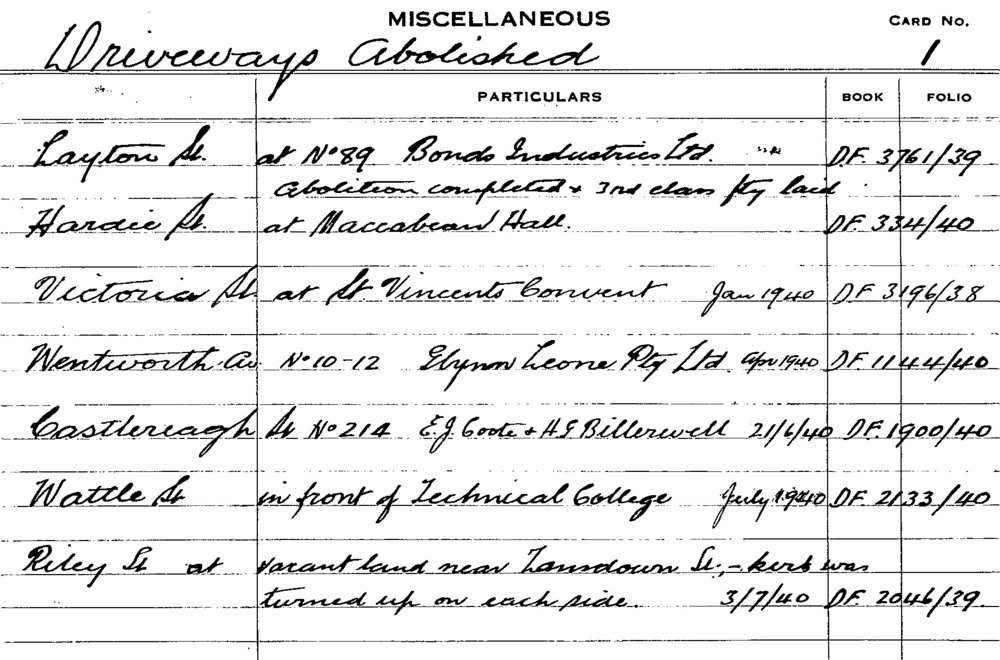 MISCELLANEOUS
CARD NO.
Driveways Abolished 1
PARTICULARS BOOK FOLIO
Layton St. at No 89 Bonds Industries Ltd. DF. 3761/39
Abolition completed + 3rd class ftg laid
Hardie St. at Maccabean Hall. DF. 334/40
Victoria St. at St Vincents Convent Jan 1940 DF 3196/38
Wentworth Av No 10-12 Glynn Leone Pty Ltd. Apr 1940 DF. 1144/40
Castlereagh St No 214 E.J. Coote + H G 21/6/40 DF. 1900/40
Wattle St in front of Technical College July 1940 DF. 2133/40
Riley St at vacant land near Lansdown St, - kerb was
turned up on each side. 3/7/40 DF. 2046/39.